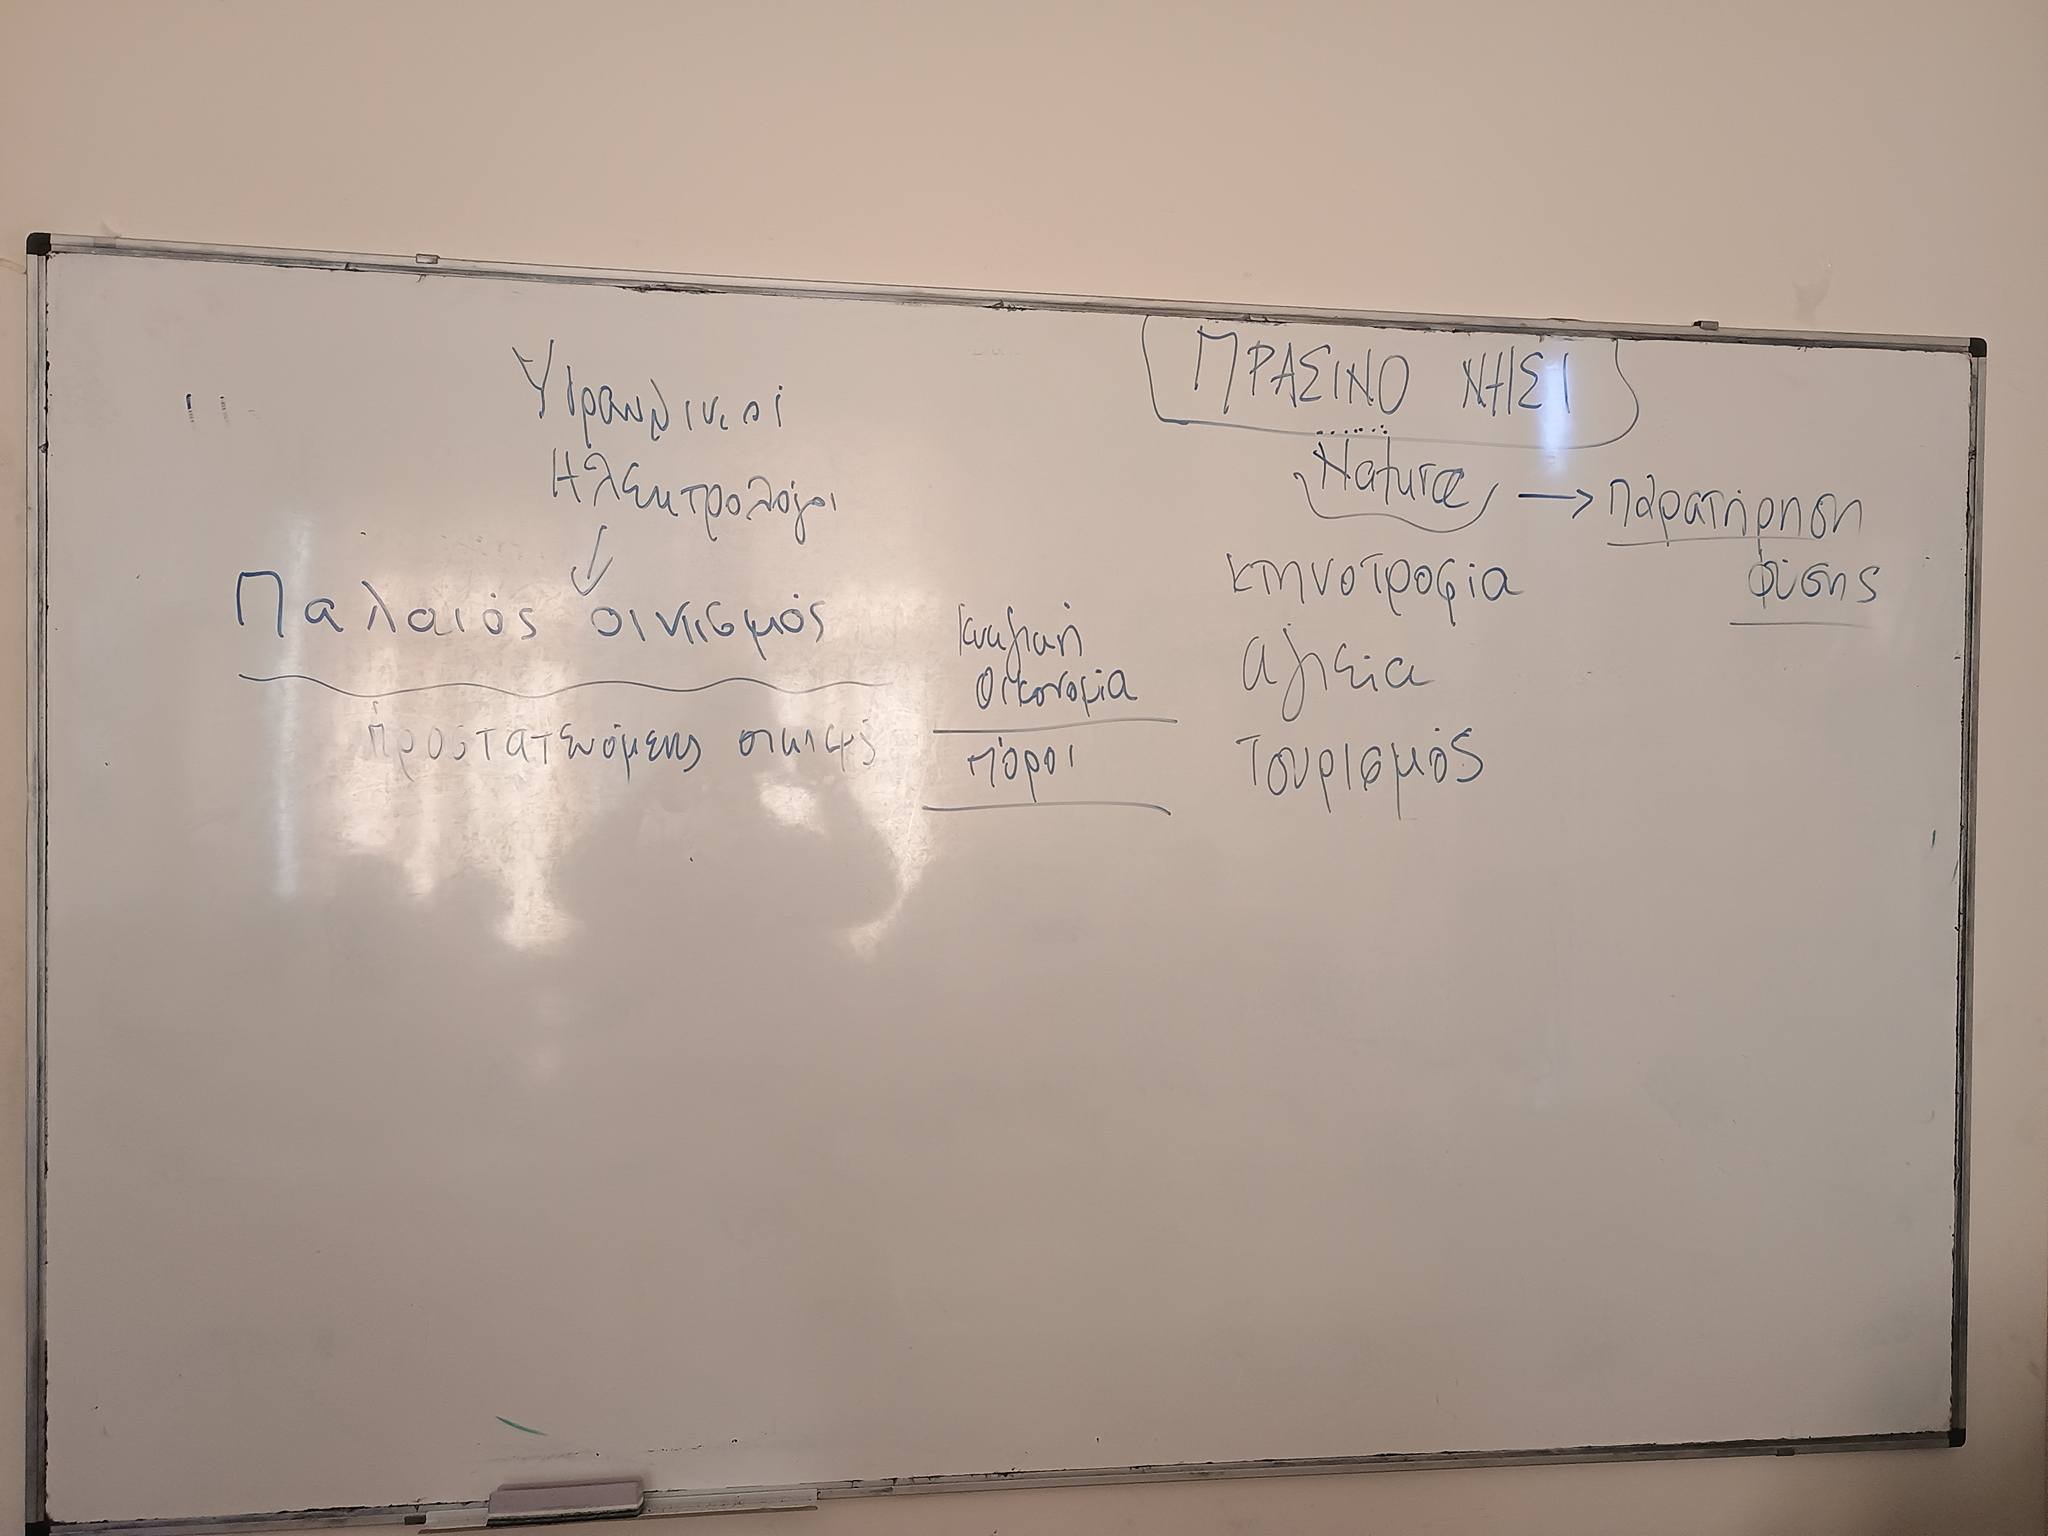 Υδραυλικοί
Ηλεκτρολόγοι
Παλαιός οικισμός
προστατευόμενος οικισμός
Κυκλική
Οικονομία
πόροι
ΠΡΑΣΙΝΟ ΝΗΣΙ
Natura → παρατήρηση
φύσης
κτηνοτροφία
αλιεία
τουρισμός